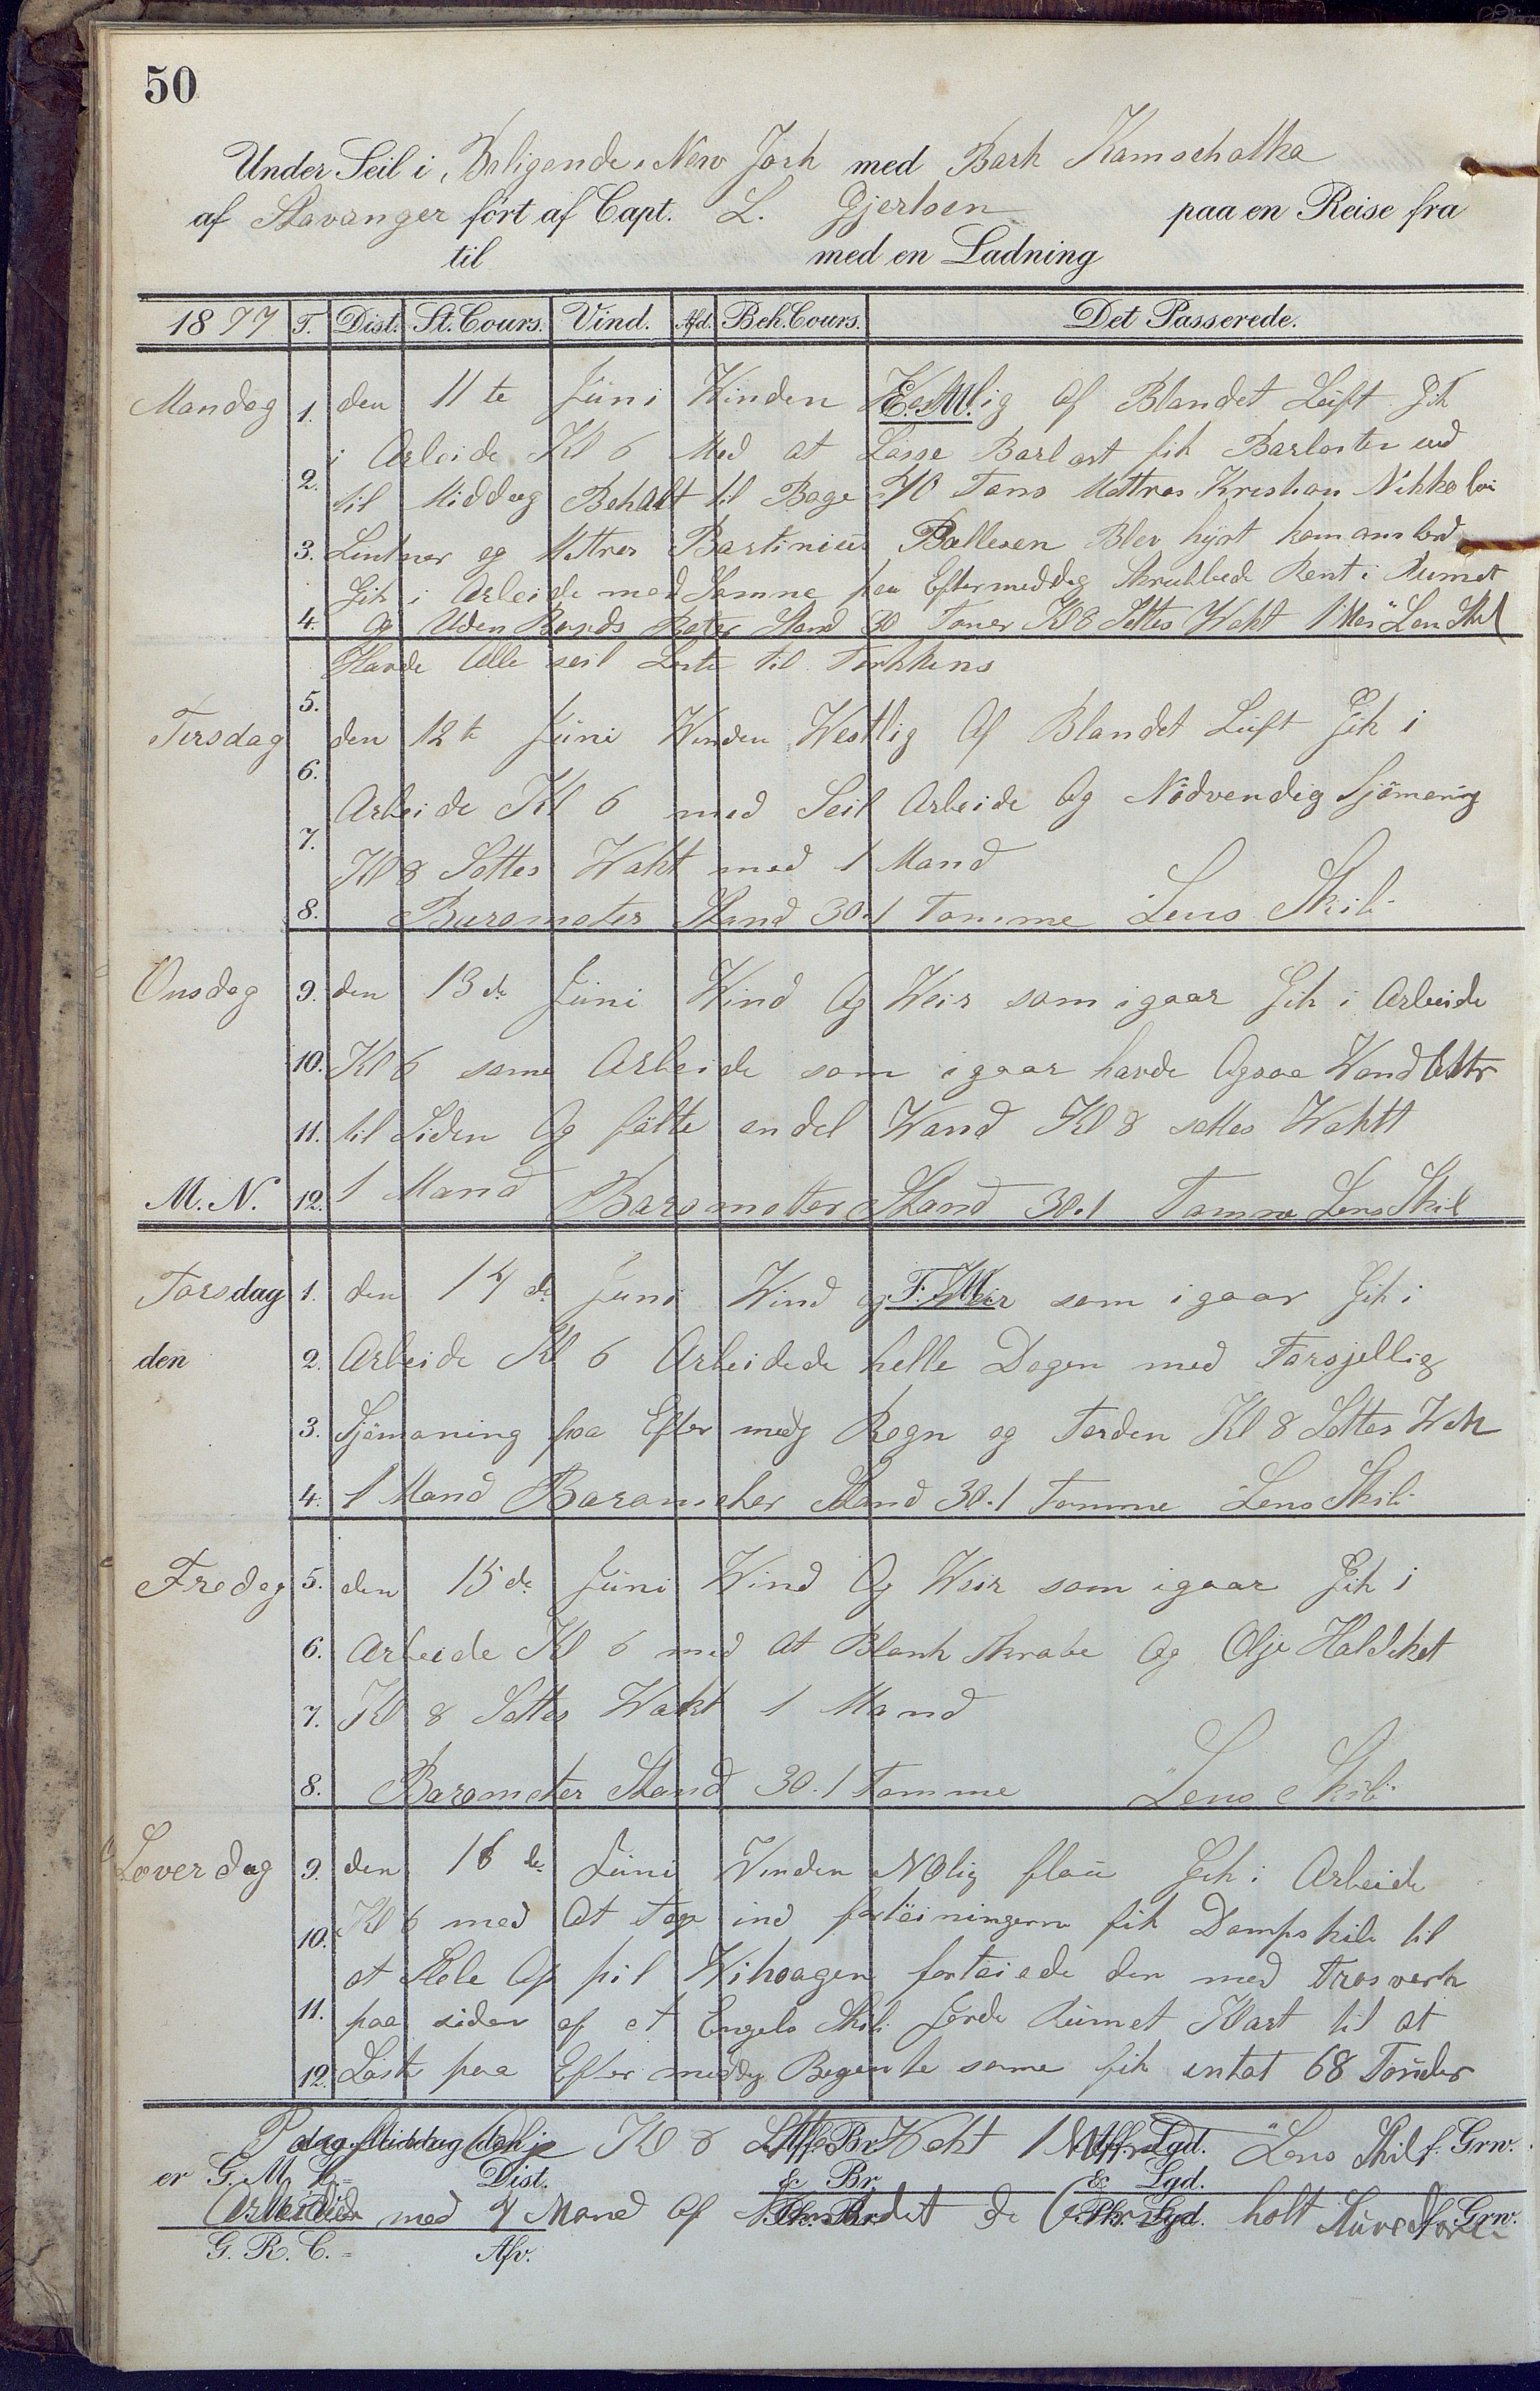 50
Under Seil i, Beligende i New York med Bark Kamschatka
af Stavanger ført af Capt. L. Gjertsen paa en Reise fra
til med en Ladning
1877 T. Dist. St. Cours. Vind. Afd. Beh. Cours. Det Passerede.
Mandag 1. den 11te Jüni Winden E.M. Westlig Af Blandet Lüft Gik
2. i Arbeide Kl 6 Med at Losse Barlast fik Barlasten ud
til Middag Behalt til Bage 240 Tons Mattros Kristian Nikkolai
3. Lentner og Mattros Bartinius Ballesen Blev hyrt kom om bord
Gik i Arbeide med Samme paa Eftermeddag Skrubbede Rent i Rumet
4. Og Uden Bords Stand 30 Tomer Kl 8 Settes Wakt 1 Man Lens Skil
Havde Alle seil Løste til Tørkkens
5.
Tirsdag den 12te Jüni Winden Westlig Af Blandet Lüft Gik i
6.
Arbeide Kl 6 med Seil Arbeide Og Nödvendig Sjömaning
7.
Kl 8 Settes Wakt med 1 Mand
8. Barometer Stand 30.1 Tomme Lens Skib
Onsdag 9. den 13de Jüni Wind Og Weir som igaar Gik i Arbeide
10. Kl 6 same Arbeide som igaar havde Ogsaa Wand
11. til Siden Og fülte en del Wand Kl 8 settes Wakt
M. N. 12. 1 Mand Barometter Stand 30.1 Tomme Lens Skib
Torsdag 1. den 14de Juni Wind og F.M. Weir som igaar Gik i
den 2. Arbeide Kl 6 Arbeidede helle Dagen med Forsjellig
3. Sjömaning paa Efter medg Regn og Torden Kl 8 Settes Wakt
4. 1 Mand Barometer Stand 30.1 Tomme Lens Skib
Fredag 5. den 15de Jüni Wind Og Weir som igaar Gik i
6. Arbeide Kl 6 med At Blank Skrabe Og Olje Haldeket
7. Kl 8 Settes Wakt 1 Mand
8. Barometer Stand 30.1 Tomme Lens Skib
Loverdag 9. den 16de Jüni Vinden NOlig flaü Gik i Arbeide
10. Kl 6 med At Tage ind fortöiningerne fik Dampskib til
at Slebe Op til Wihoagen fortöiede den med Trosverk
11. paa siden af et Engels Skib Jorde Rümet Klart til at
12. Laste paa Efter meddg Begynte same fik intat 68 Tönder
dag Middag Kl 8 Settes Wakt Aff. Br. 1 Aff. Lgd. Lens Skib f. Grw.
er G. M. C. = Dist. & Br. & Lgd.
Arbeider med 4 Mand Af Pk. Br. de Pk. Lgd. holt f. Grw.
G. R. C. = Afv.